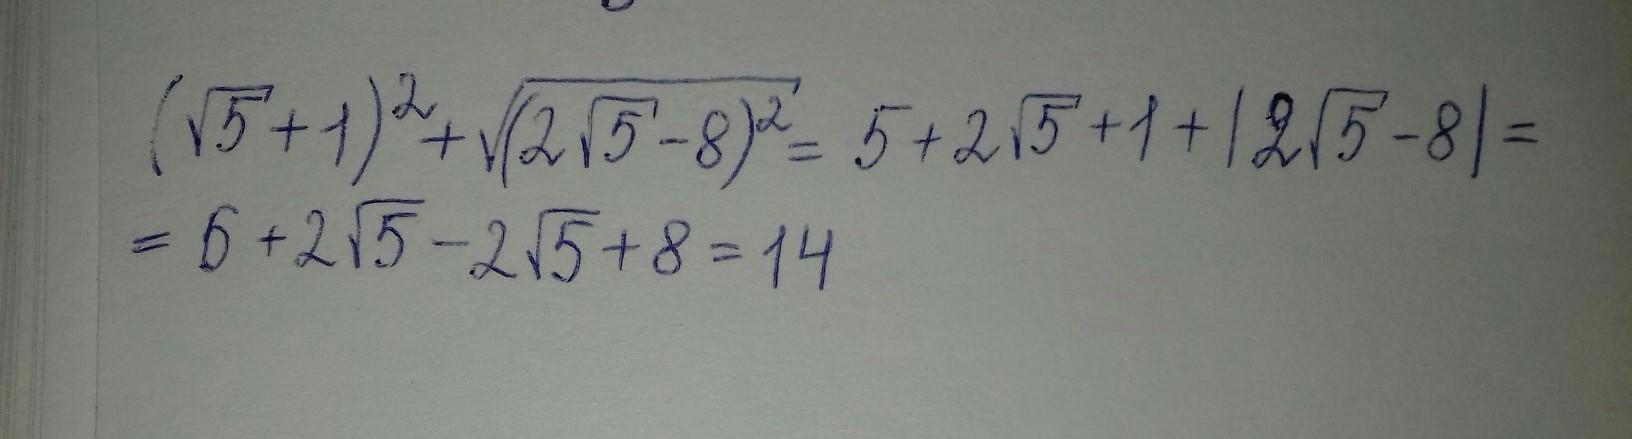 (√5+1)²+√(2√5-8)²= 5+2√5+1+|2√5-8|=
= 6+2√5-2√5+8=14